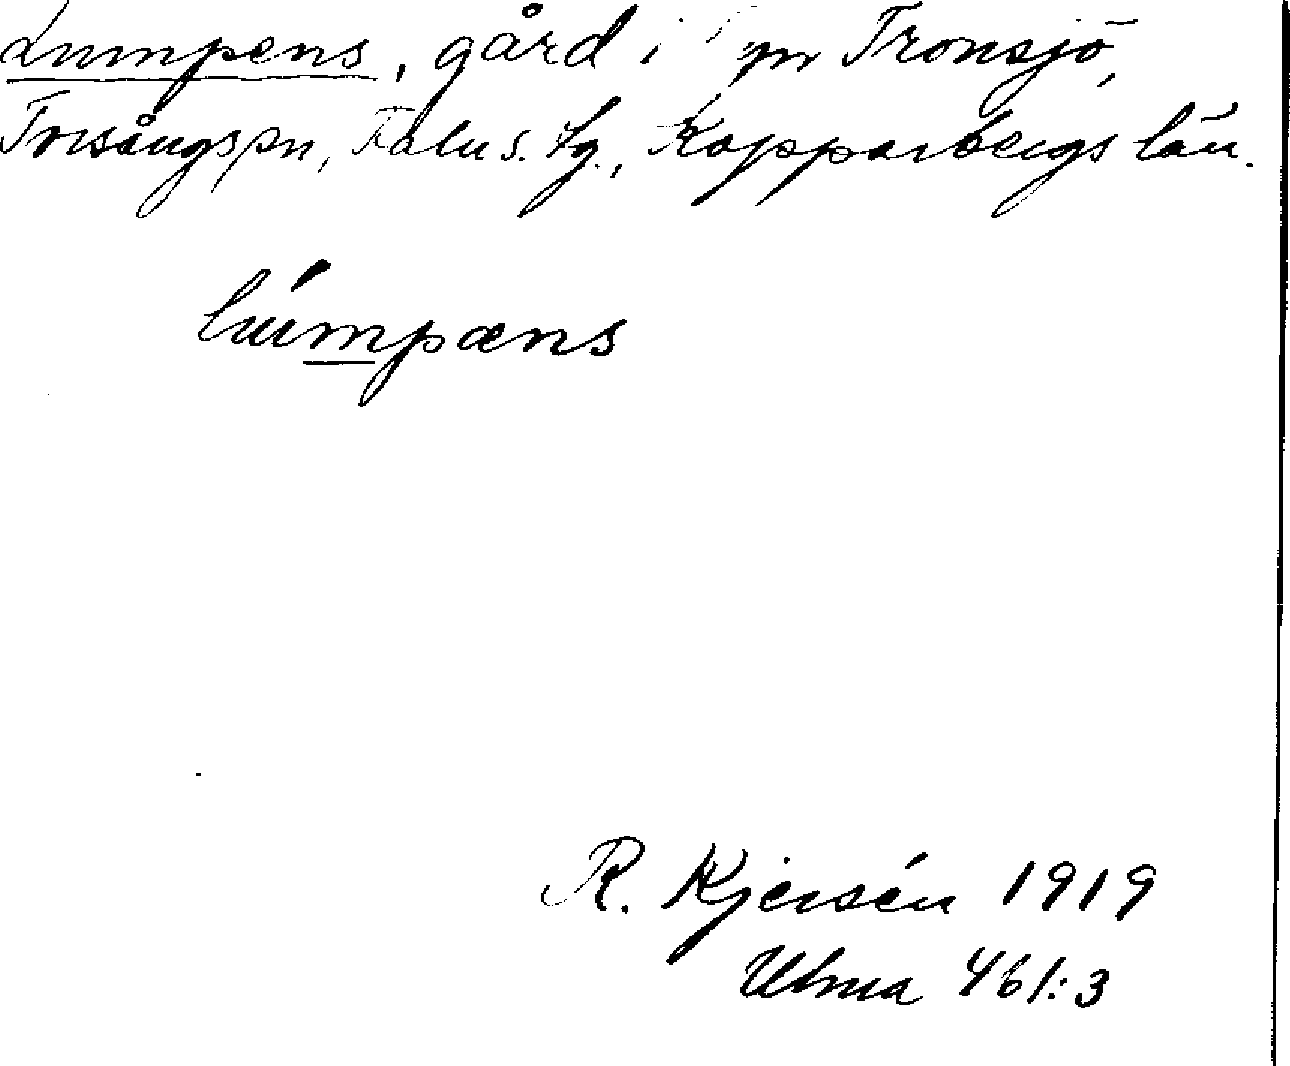 Lumpens, gård i byn Tronsjö,
Torsångs sn, Falu s. tg., Kopparbergs län.
lúmpæns
R. Kjersén 1919
Ulma 461:3